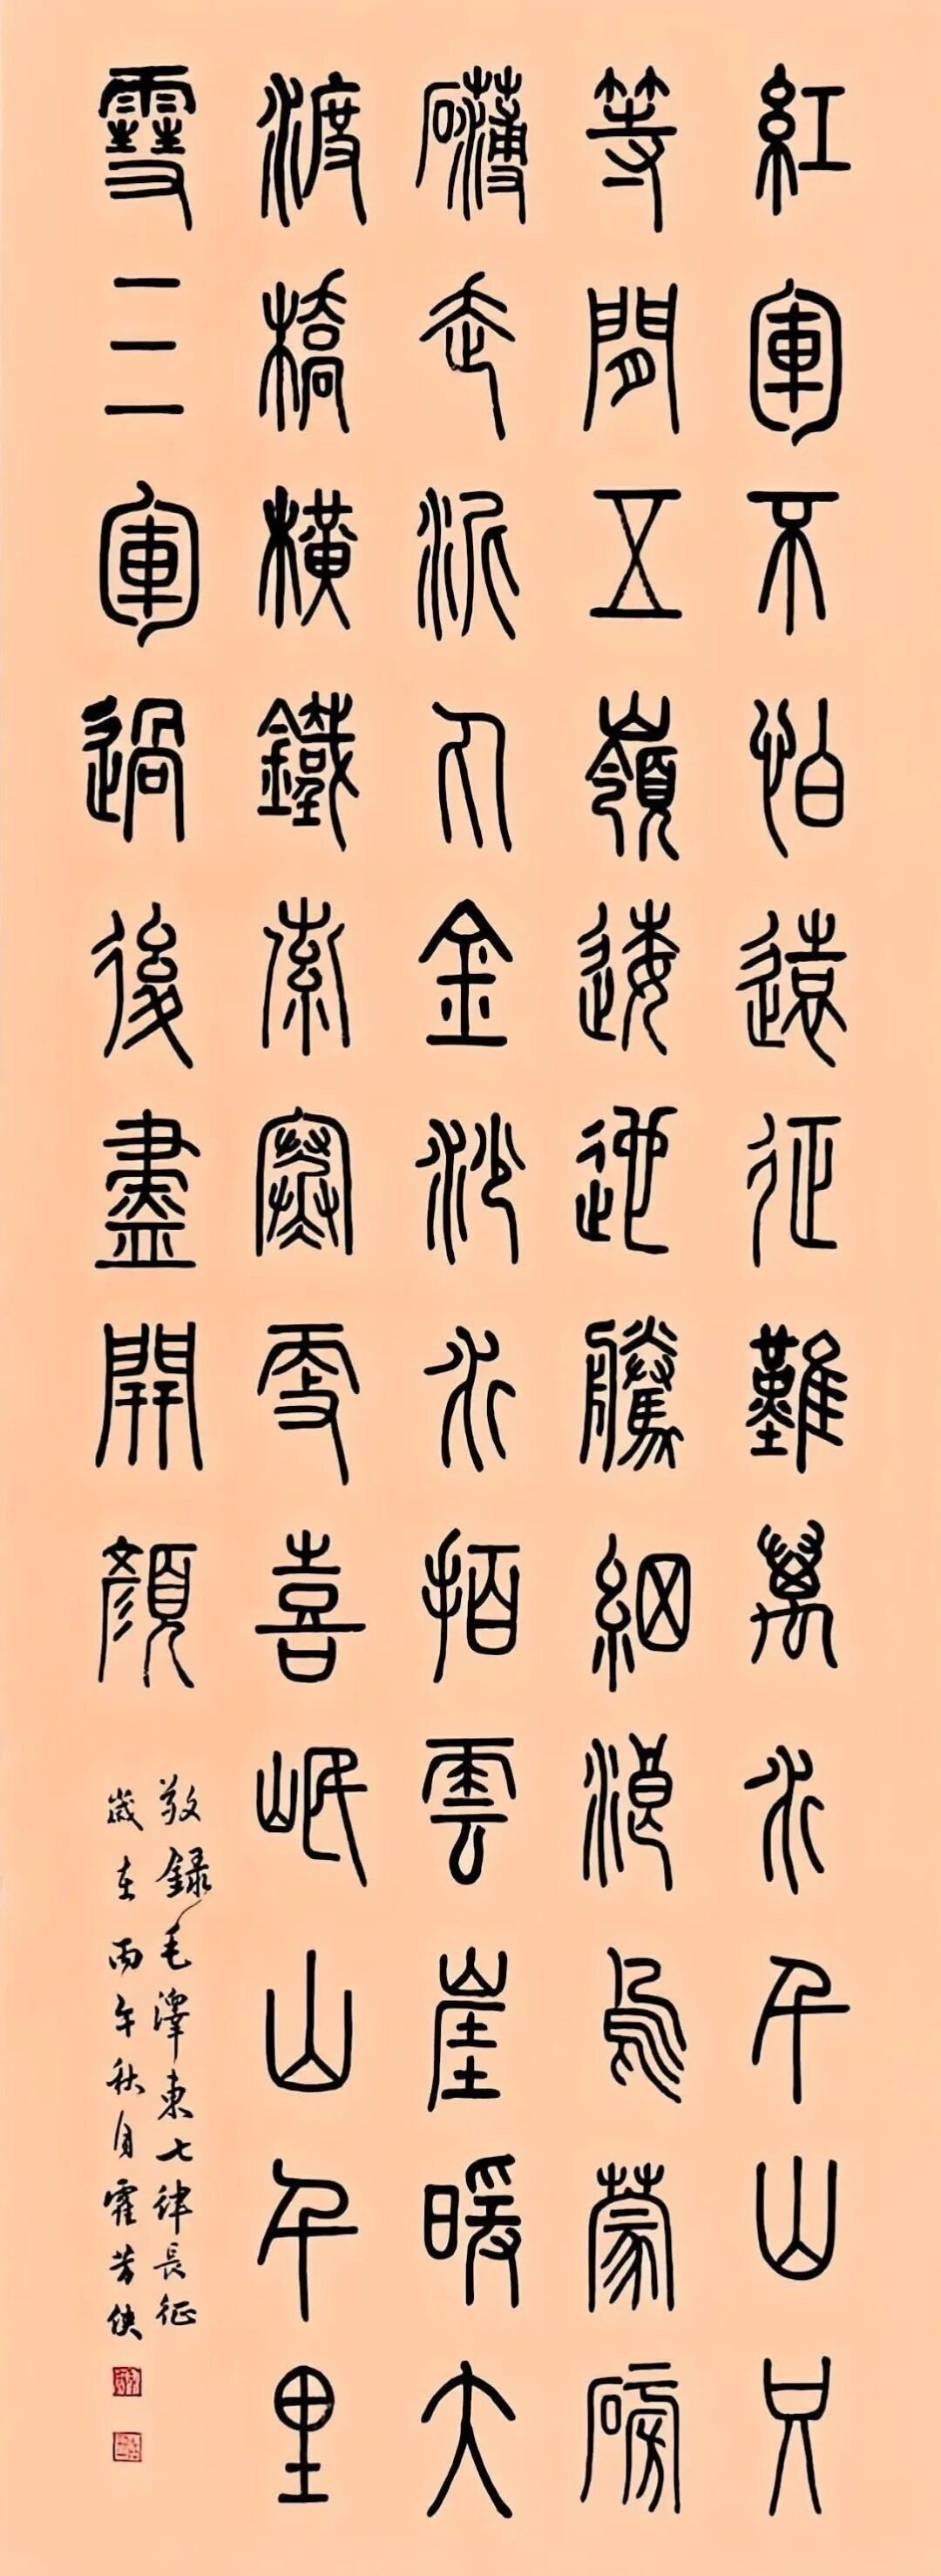 紅軍不怕遠征難萬水千山只
等閒五嶺逶迤騰細浪烏蒙磅
礴走泥丸金沙水拍雲崖暖大
渡橋橫鐵索寒更喜岷山千里
雪三軍過後盡開顏
敬録毛澤東七律長征
歲在丙午秋月霍芳俠